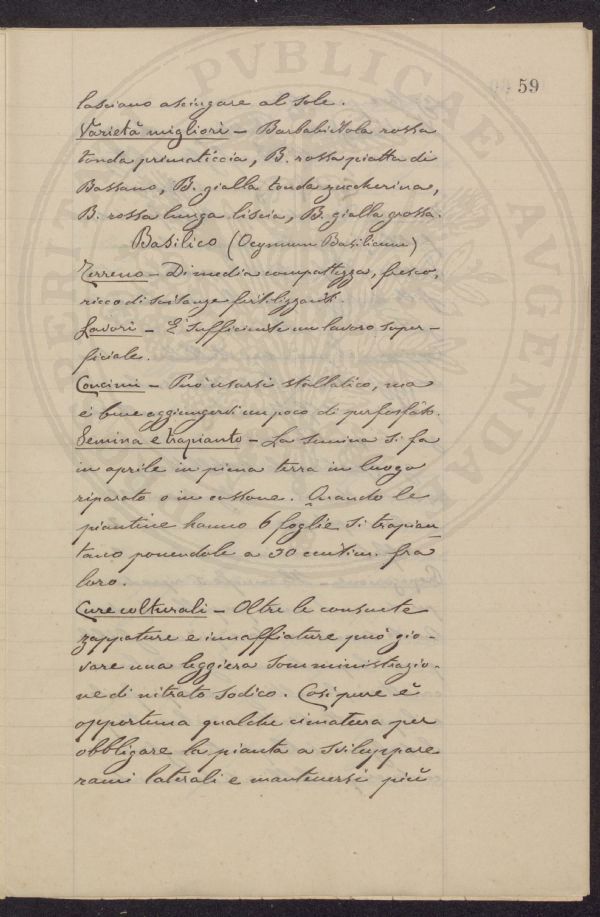 59
lasciano asciugare al sole.
Varietà migliori - Barbabietola rossa
tonda primaticcia, B. rossa piatta di
Bassano, B. gialla tonda zuccherina,
B. rossa lunga liscia, B. gialla grossa.
Basilico (Ocymum Basilicum)
Terreno - Di media compattezza, fresco,
ricco di sostanze fertilizzanti.
Lavori - È sufficiente un lavoro super-
ficiale.
Concimi - Può usarsi stallatico, ma
è bene aggiungervi un poco di perfosfato.
Semina e trapianto - La semina si fa
in aprile in piena terra in luogo
riparato o in cassone. Quando le
piantine hanno 6 foglie si trapian
tano ponendole a 30 centim. fra
loro.
Cure colturali - Oltre le consuete
zappature e innaffiature può gio-
vare una leggiera somministrazio-
ne di nitrato sodico. Così pure è
opportuna qualche cimatura per
obbligare la pianta a sviluppare
rami laterali e mantenersi più
PVBLICAE
AVGENDAE